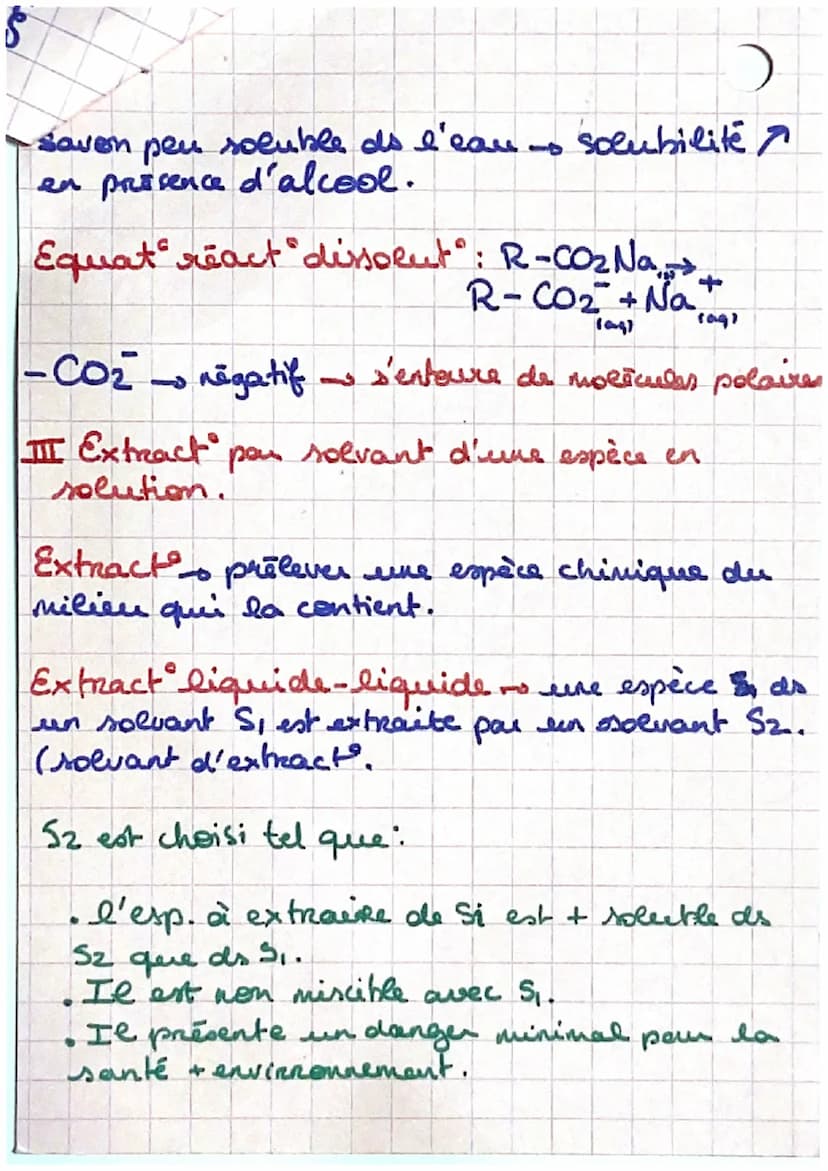 Savon peu soluble ds l'eau → solubilité ↗
en présence d'alcool.
Equat° réact° dissolut° : R-CO2Na(s) →
R-CO2⁻(aq) + Na⁺(aq)
-CO2⁻ → négatif → s'entoure de molécules polaires
III Extract° par solvant d'une espèce en
solution.
Extract° → prélever une espèce chimique du
milieu qui la contient.
Extract° liquide-liquide → une espèce ds
un solvant S1 est extraite par un solvant S2.
(solvant d'extract°.
S2 est choisi tel que :
• l'esp. à extraire de S1 est + soluble ds
S2 que ds S1.
• Il est non miscible avec S1.
• Il présente un danger minimal pour la
santé + envirronnement.